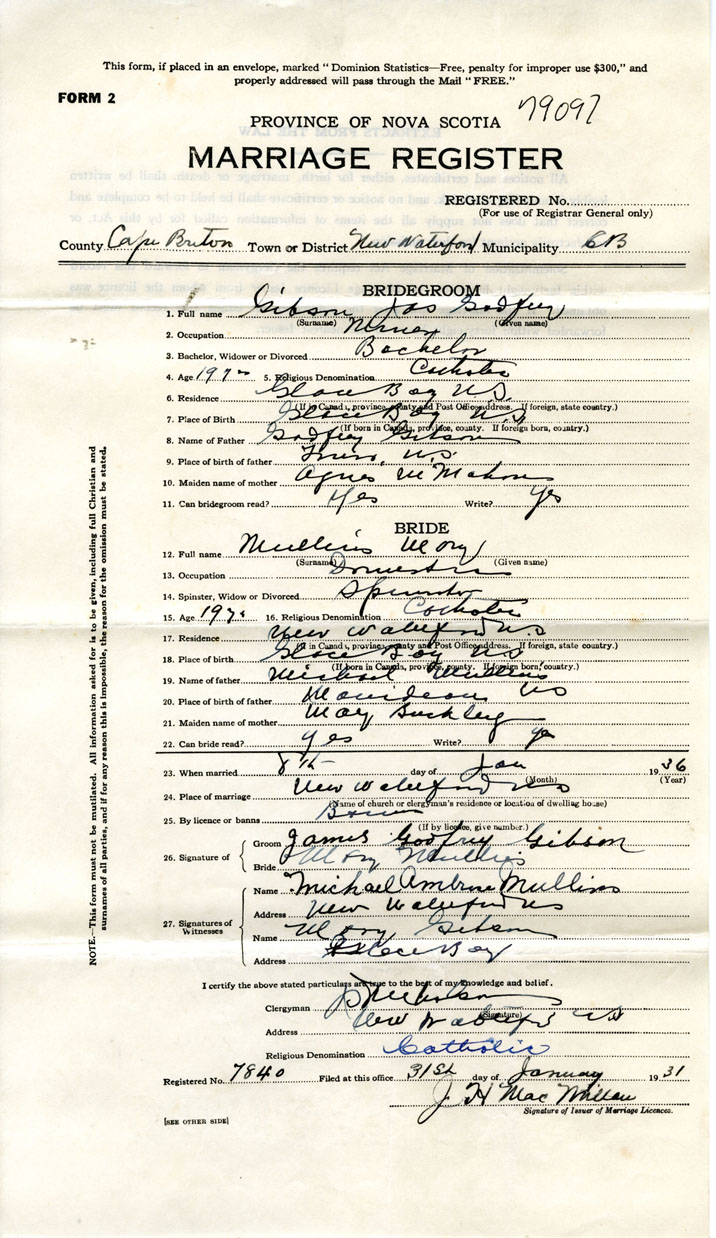 This form, if placed in an envelope, marked “Dominion Statistics—Free, penalty for improper use $300,” and
properly addressed will pass through the Mail “FREE.”
FORM 2
79097
PROVINCE OF NOVA SCOTIA
MARRIAGE REGISTER
REGISTERED No.
(For use of Registrar General only)
County Cape Breton Town or District New Waterford Municipality CB
BRIDEGROOM
1. Full name Gibson Jas Godfrey
(Surname) (Given name)
2. Occupation
3. Bachelor, Widower or Divorced Bachelor
4. Age 19 5. Religious Denomination Catholic
6. Residence Glace Bay N.S.
(If in Canada, province, county and Post Office address. If foreign, state country.)
7. Place of Birth Glace Bay N.S
(If born in Canada, province, county. If foreign born, country.)
8. Name of Father Godfrey Gibson
9. Place of birth of father Truro, N.S.
10. Maiden name of mother Agnes McMahon
11. Can bridegroom read? Yes Write? Yes
BRIDE
12. Full name Mullins Mary
(Surname) (Given name)
13. Occupation Domestic
14. Spinster, Widow or Divorced Spinster
15. Age 19 16. Religious Denomination Catholic
17. Residence New Waterford N.S
(If in Canada, province, county and Post Office address. If foreign, state country.)
18. Place of birth Glace Bay N.S
(If born in Canada, province, county. If foreign born, country.)
19. Name of father Michael Mullins
20. Place of birth of father NS
21. Maiden name of mother May Buckley
22. Can bride read? yes Write? yes
23. When married 8th day of Jan 1936
(Month) (Year)
24. Place of marriage New Waterford NS
(Name of church or clergyman's residence or location of dwelling house)
25. By licence or banns Banns
(If by licence, give number.)
26. Signature of
Groom James Godfrey Gibson
Bride Mary Mullins
27. Signatures of Witnesses
Name Michael Ambrose Mullins
Address New Waterford NS
Name Mary Gibson
Address Glace Bay
I certify the above stated particulars are true to the best of my knowledge and belief.
Clergyman Nicholson
(Signature)
Address New Waterford NS
Religious Denomination Catholic
Registered No. 7840 Filed at this office 31st day of January 1931
J. H MacMillan
Signature of Issuer of Marriage Licences.
[SEE OTHER SIDE]
NOTE.—This form must not be mutilated. All information asked for is to be given, including full Christian and
surnames of all parties, and if for any reason this is impossible, the reason for the omission must be stated.